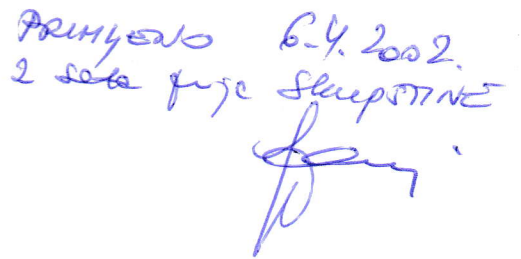 PRIMLJENO 6.4.2002.
2 sata prije SkupšTINE